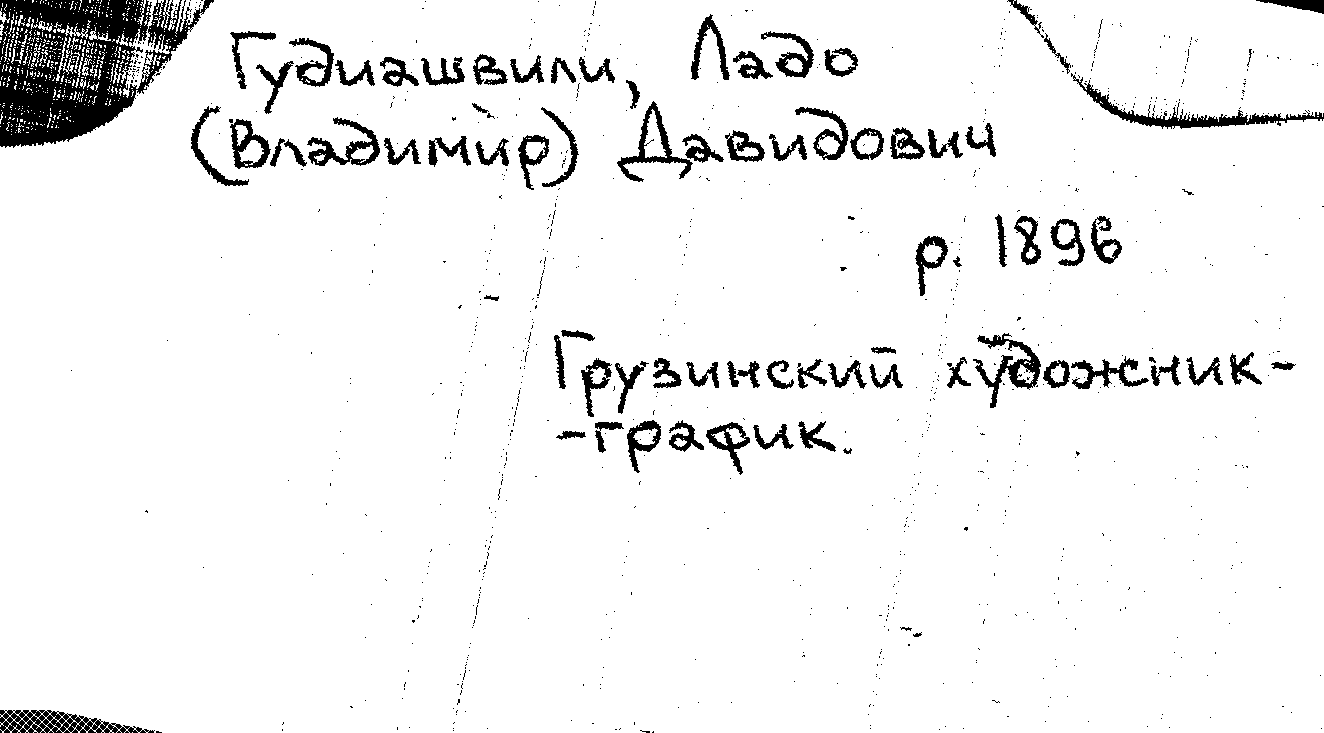 Гудиашвили, Ладо
(Владимир) Давидович
р. 1896
Грузинский художник-
-график.